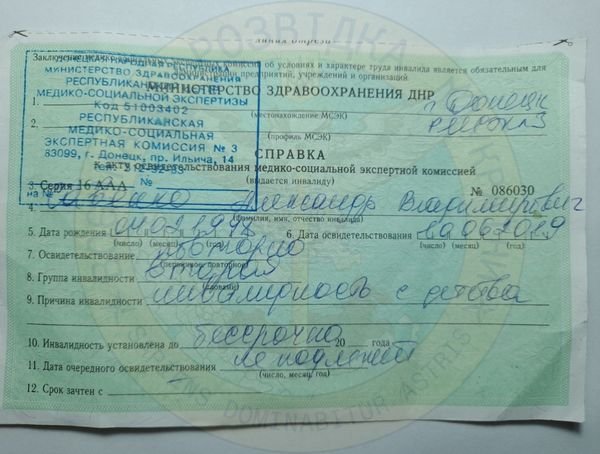 РОЗВІДКА
линия отреза
Заключение об условиях и характере труда инвалида является обязательным для
администрации предприятий, учреждений и организаций.
МИНИСТЕРСТВО ЗДРАВООХРАНЕНИЯ ДНР
ДОНЕЦКАЯ НАРОДНАЯ РЕСПУБЛИКА
МИНИСТЕРСТВО ЗДРАВООХРАНЕНИЯ
МЕДИКО-СОЦИАЛЬНОЙ ЭКСПЕРТИЗЫ
Код 51003402
РЕСПУБЛИКАНСКАЯ
МЕДИКО-СОЦИАЛЬНАЯ
ЭКСПЕРТНАЯ КОМИССИЯ № 3
83099, г. Донецк, пр. Ильича, 14
на № №
1. г. Донецк
(местонахождение МСЭК)
2.
(профиль МСЭК)
СПРАВКА
к акту освидетельствования медико-социальной экспертной комиссией
(выдается инвалиду)
3. Серия 16 ААА № 086030
4. Александр Владимирович
(фамилия, имя, отчество инвалида)
5. Дата рождения 6. Дата освидетельствования
(число) (месяц) (год) (число) (месяц) (год)
7. Освидетельствование повторно
(первичное, повторное)
8. Группа инвалидности вторая
(словами)
9. Причина инвалидности инвалидность с детства
10. Инвалидность установлена до бессрочно 20 года
11. Дата очередного освидетельствования не подлежит
(число, месяц, год)
12. Срок зачтен с
DOMINABITUR ASTRIS